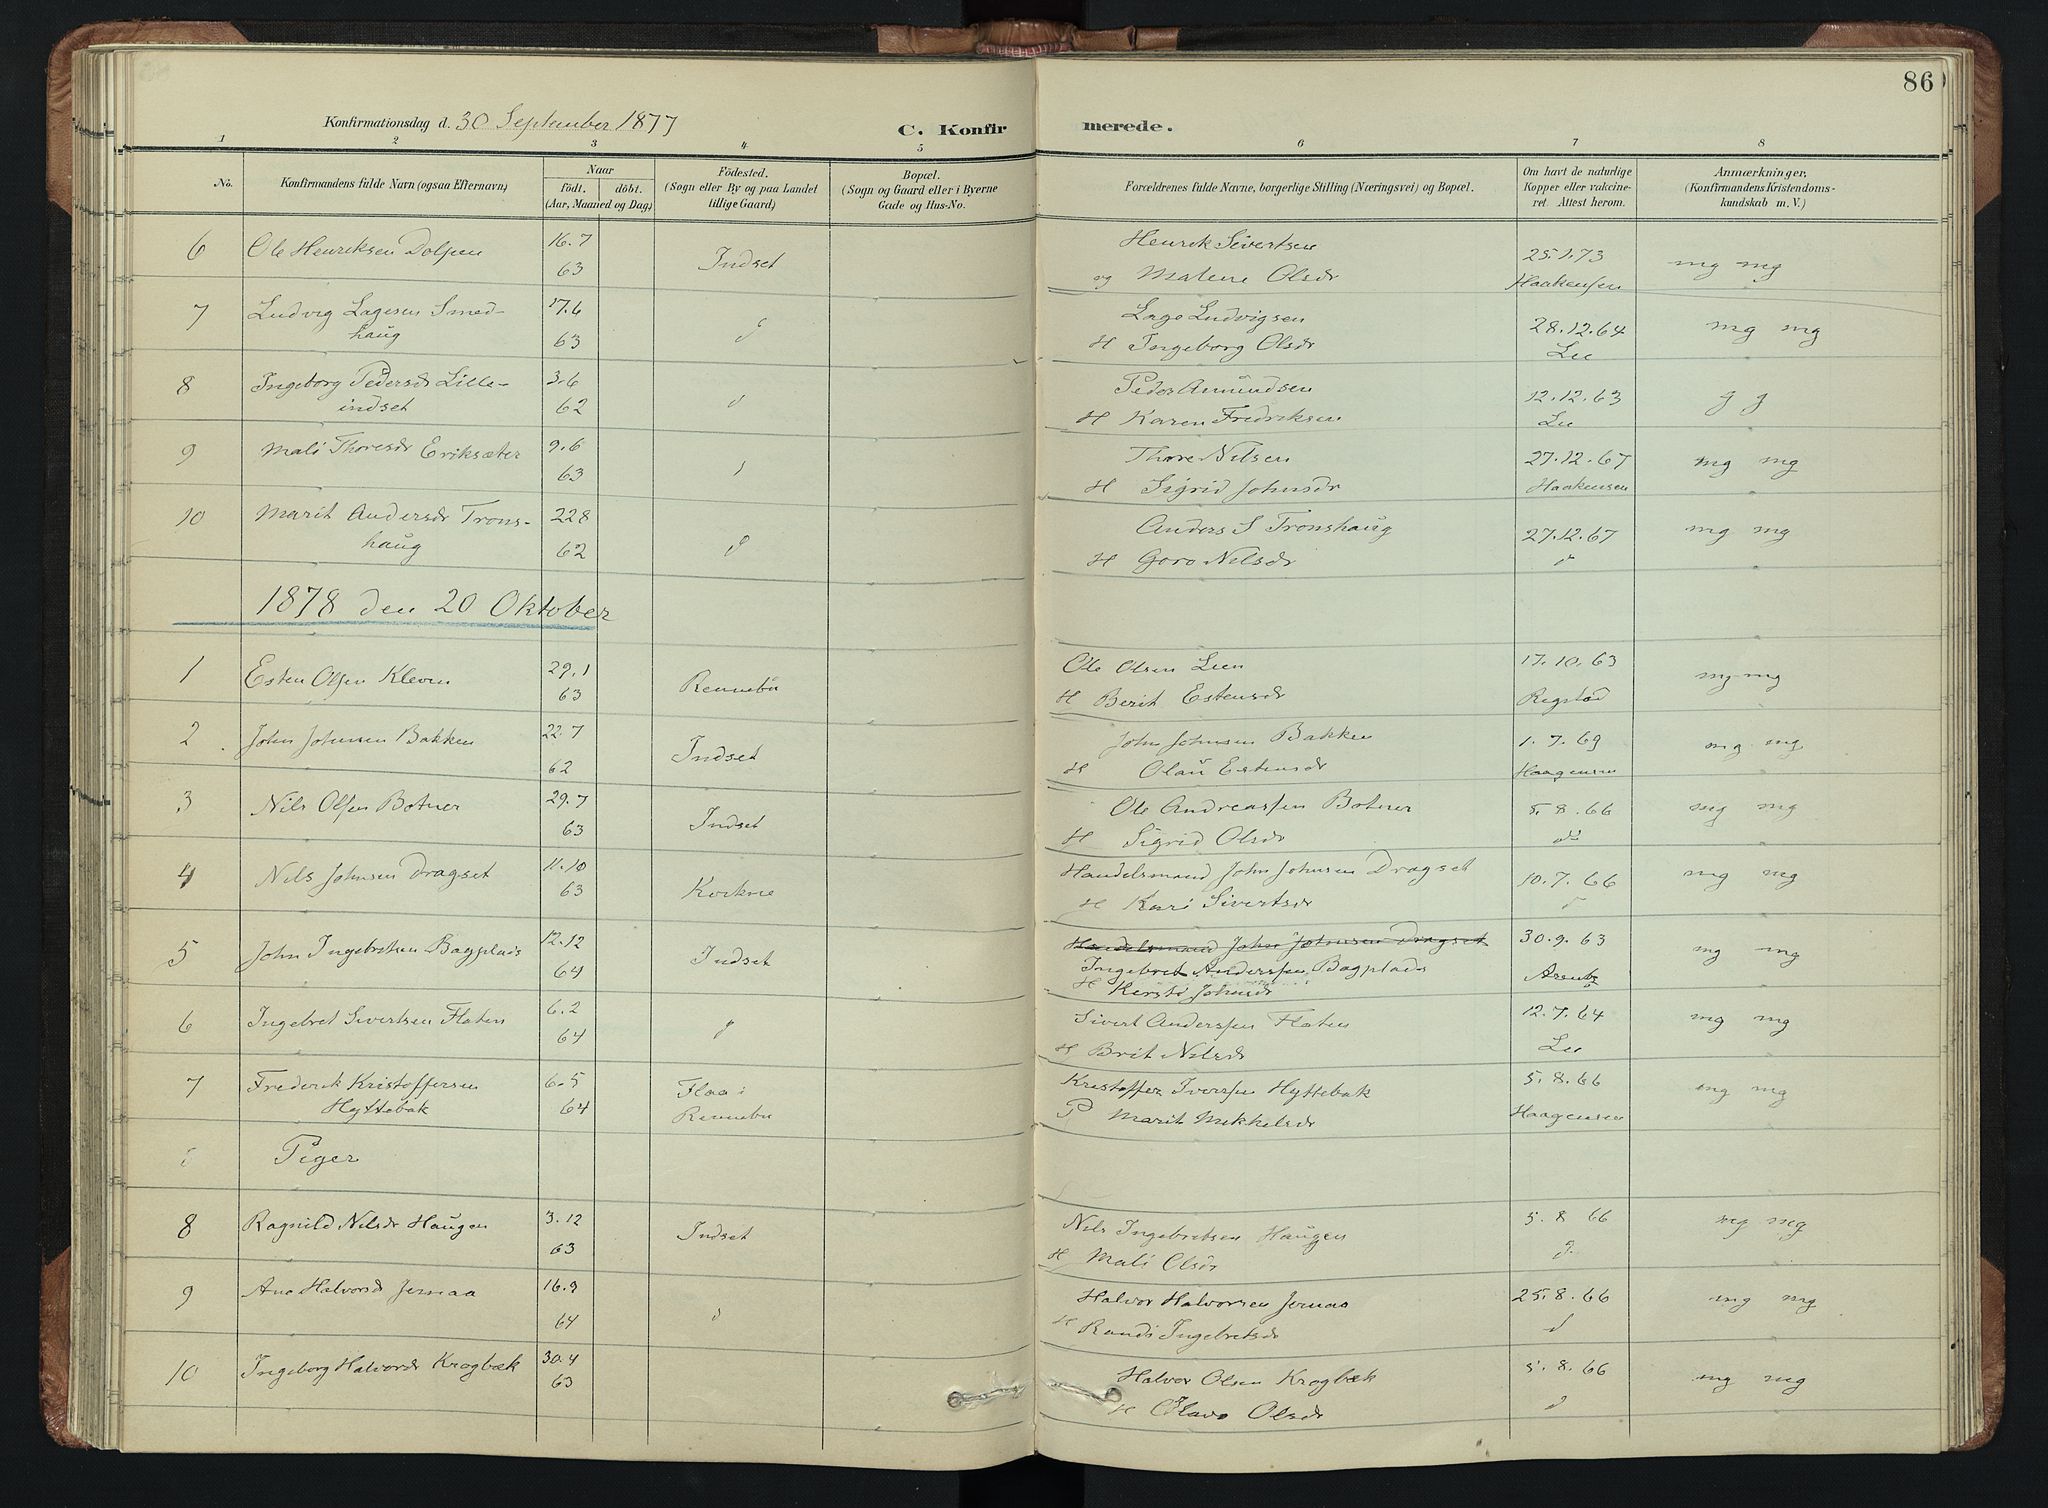 86
Konfirmationsdag d. 30 September 1877
C. Konfirmerede.
1 2 3 4 5 6 7 8
No. Konfirmandens fulde Navn (ogsaa Efternavn) Naar født. døbt. (Aar, Maaned og Dag) Fødested. (Sogn eller By og paa Landet tillige Gaard) Bopæl. (Sogn og Gaard eller i Byerne Gade og Hus-No. Forældrenes fulde Navne, borgerlige Stilling (Næringsvei) og Bopæl. Om havt de naturlige Kopper eller vakcineret. Attest herom. Anmærkninger, (Konfirmandens Kristendomskundskab m. V.)
6 Ole Henriksen Dolpen 16.7 Henrik Sivertsen 25.1.73 mg mg
63 Indset og Malene Olsdr Haakensen
7 Ludvig Lagesen Smed- 17.6 Lage Ludvigsen 28.12.64 mg mg
haug 63 d H Ingeborg Olsdr Lee
8 Ingeborg Pedersdr Lille- 3.6 Peder Amundsen 12.12.63 g g
indset 62 d H Karen Fredriksen Lee
9 Mali Thoresdr Eriksæter 9.6 Thore Nilsen 27.12.67 mg mg
63 H Sigrid Johnsdr Haakensen
10 Marit Andersdr Trons- 22 8 Anders S Tronshaug 27.12.67 mg mg
haug 62 d H Goro Nilsdr d
1878 den 20 Oktober
1 Esten Olsen Kleven 29.1 Ole Olsen Leen 17.10.63 mg mg
63 Rennebu H Berit Estensdr Rogstad
2 John Johnsen Bakken 22.7 John Johnsen Bakken 1.7.69 mg mg
62 Indset H Olau Estensdr Haagensen
3 Nils Olsen Botner 29.7 Ole Andreassen Botner 5.8.66 mg mg
63 Indset H Sigrid Olsdr do
4 Nils Johnsen Dragset 11.10 Handelsmand John Johnsen Dragset 10.7.66 mg mg
63 Kvikne H Kari Sivertsdr d
5 John Ingebretsen Bagplads 12.12 Handelsmand John Johnsen Dragset 30.9.63 mg mg
64 Indset Ingebret Anderssen Bagplads Arentz
H Kersti Johnsdr
6 Ingebret Sivertsen Flaten 6.2 Sivert Anderssen Flaten 12.7.64 mg mg
64 d H Brit Nilsdr Lee
7 Frederik Kristoffersen 6.5 Flaa i Kristoffer Iverssen Hyttebak 5.8.66 mg mg
Hyttebak 64 Rennebu P Marit Mikkelsdr Haagensen
Piger
8 Ragnild Nilsdr Haugen 3.12 Nils Ingebretsen Haugen 5.8 66 mg mg
63 Indset H Mali Olsdr d
9 Ane Halvorsd Jernaa 16.9 Halvor Halvorsen Jernaa 25.8.66 mg mg
64 d H Randi Ingebretsdr d
10 Ingeborg Halvorsdr Krogbæk 30.4 Halvor Olsen Krogbæk 5.8.66 mg mg
63 H Olava Olsdr d